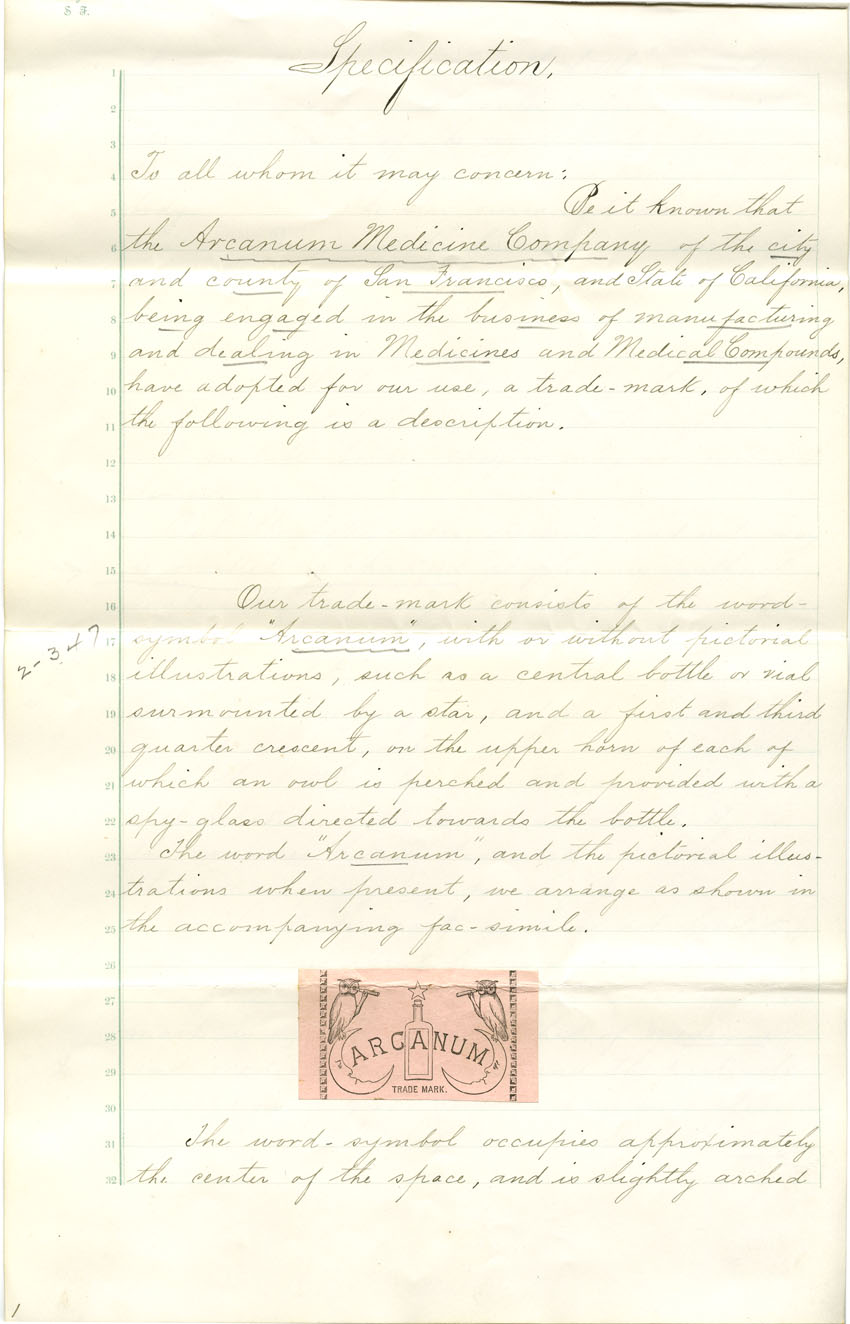 S F.
Specification.
1
2
3
4 To all whom it may concern:
5 Be it known that
6 the Arcanum Medicine Company of the city
7 and county of San Francisco, and State of California,
8 being engaged in the business of manufacturing
9 and dealing in Medicines and Medical Compounds,
10 have adopted for our use, a trade-mark, of which
11 the following is a description.
12
13
14
15
16 Our trade-mark consists of the word-
2-347
17 symbol "Arcanum", with or without pictorial
18 illustrations, such as a central bottle or vial
19 surmounted by a star, and a first and third
20 quarter crescent, on the upper horn of each of
21 which an owl is perched and provided with a
22 spy-glass directed towards the bottle.
23 The word "Arcanum", and the pictorial illus-
24 trations when present, we arrange as shown in
25 the accompanying fac-simile.
26
27
28
ARCANUM
29
TRADE MARK.
30
31 The word-symbol occupies approximately
32 the center of the space, and is slightly arched
1